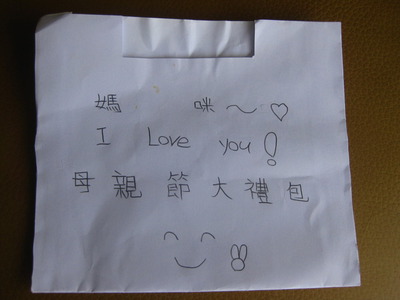 媽 咪～♡
I Love you!
母親節大禮包